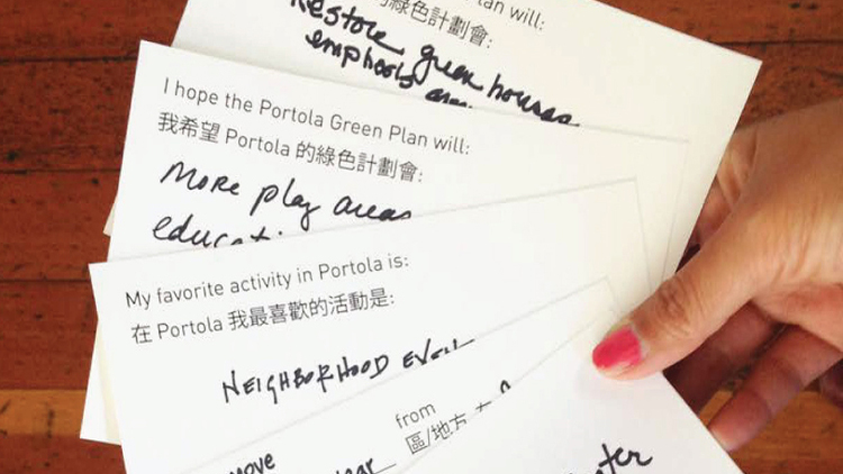 lan will:
的綠色計劃會:
Restore green houses
emphasis
I hope the Portola Green Plan will:
我希望 Portola 的綠色計劃會:
More play areas
My favorite activity in Portola is:
在 Portola 我最喜歡的活動是:
NEIGHBORHOOD
from
區/地方